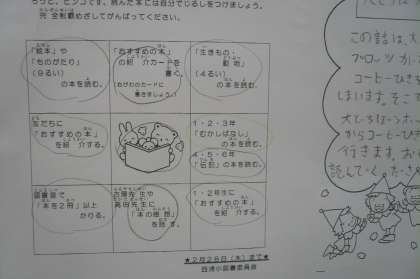 と、ビンゴです。読んだ本には自分でじるしをつけましょう。
完全制覇めざしてがんばってください。
「絵本」や
「ものがたり」
(9るい)
の本を読む。
「おすすめの本」
の紹介カードを
書く。
(おがわのカードに
書きましょう。)
「生きもの・
動物」
(4るい)
の本を読む。
友だちに
「おすすめの本」
を紹介する。
1・2・3年
「むかしばなし」
の本を読む。
4・5・6年
「伝記」の本を
読む。
図書館で
「本を2冊」以上
かりる。
先生や
高田先生に
「本の感想」
を話す。
1・2年生に
「おすすめの本」
を紹介する。
★2月28日(木)まで★
西浦小図書委員会
この話は、大
ブロッツか
コーヒーひき
しまいます。そこで
大どろぼうホ
からコーヒーひ
行きます。お
読んでく